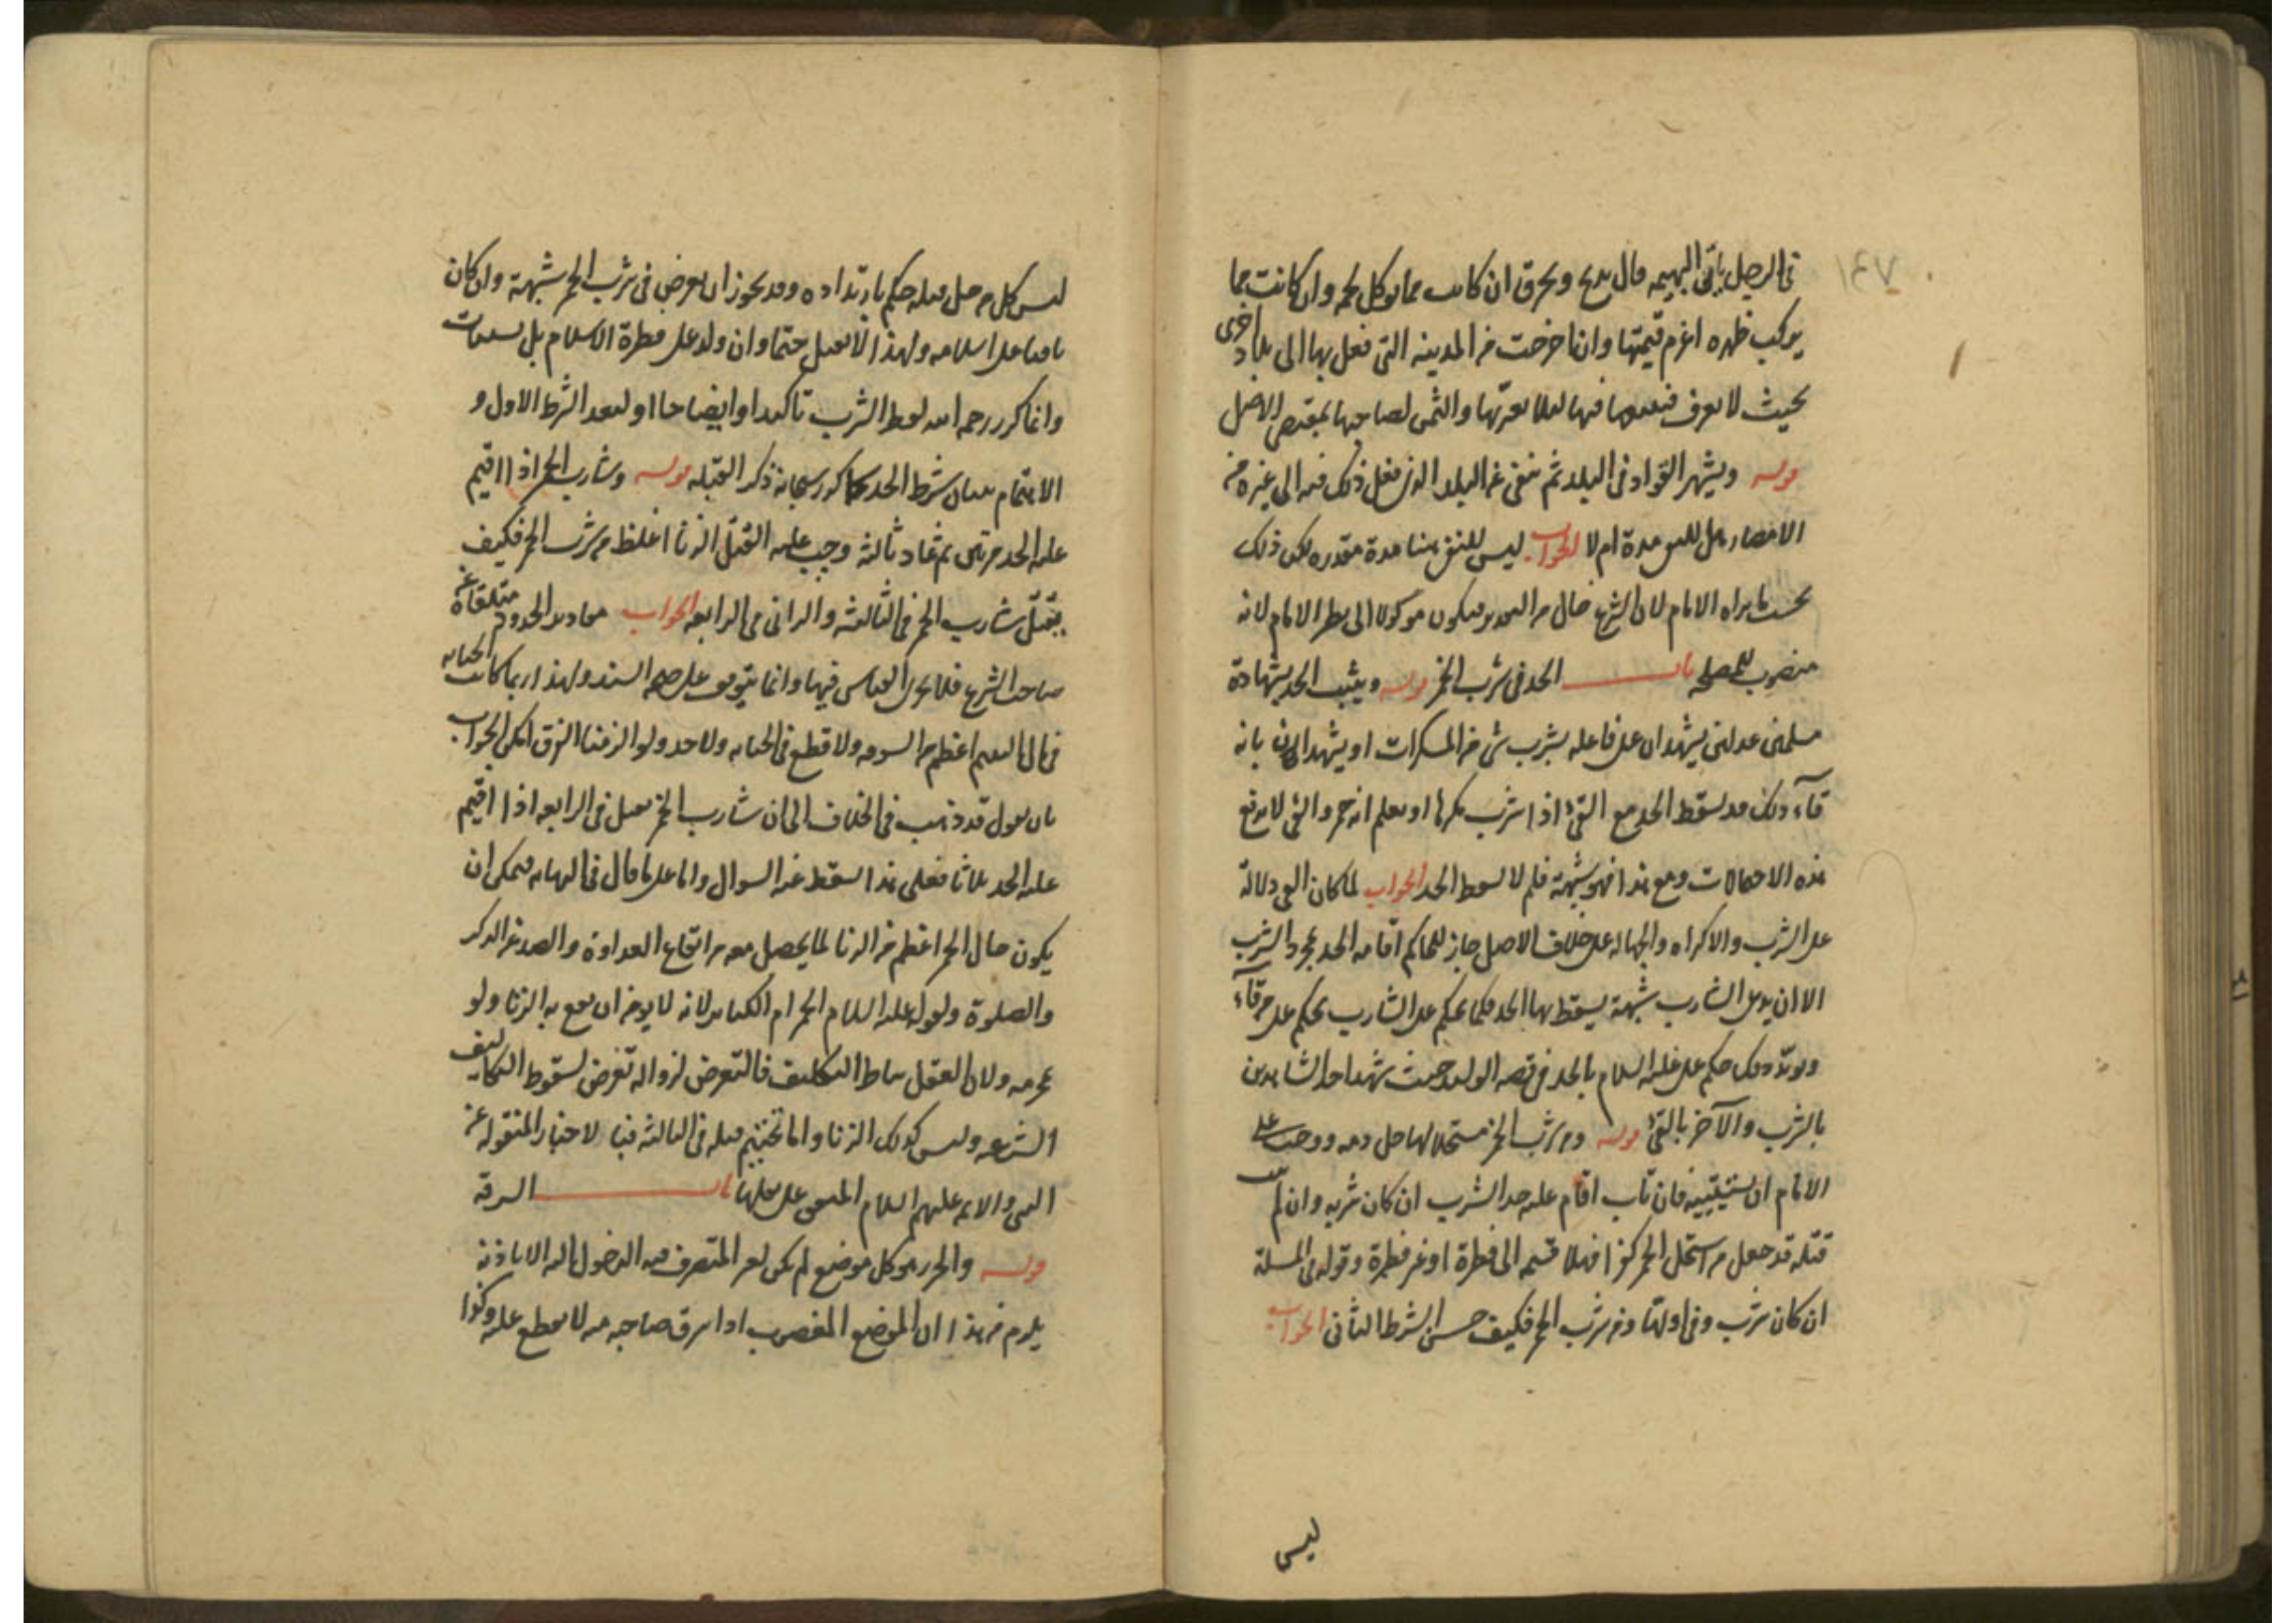 في الرجل يأتي البهيمه قال يذبح ويحرق ان كانت مما يوكل لحمه وان كانت مما
يركب ظهره اغرم قيمتها وانما خرجت من المدينه التي فعل بها الى بلاد اخرى
بحيث لا يعرف فبيعها فيها لئلا يعر بها والثمن لصاحبها بمقتضى الاصل
قوله ويشهر القواد في البلد ثم ينفى عن البلد الذي فعل ذلك فيه الى غيره من
الامصار هل للنفي مدة ام لا الجواب ليس للنفي هنا مدة مقدره لكن ذلك
بحسب ما يراه الامام لان الشرع خال من التحديد فيكون موكولا الى نظر الامام لانه
منصوب للمصلحه باب الحد في شرب الخمر قوله ويثبت الحد بشهادة
مسلمين عدلين يشهدان على فاعله بشرب شي من المسكرات او يشهدان بانه
قاء ذلك قد يسقط الحد مع القيء اذا شرب مكرها او يعلم انه خمر والقي لا يدفع
هذه الاحتمالات ومع هذا فهو شبهة فلم لا يسقط الحد الجواب لما كان القي دلالة
على الشرب والاكراه والجهاله على خلاف الاصل جاز للحاكم اقامه الحد بمجرد الشرب
الا ان يدعي الشارب شبهة يسقط بها الحد فكما يحكم على الشارب يحكم على من قاء
ويؤيد ذلك حكم علي عليه السلام بالحد في قصه الوليد حيث شهد احد الشاهدين
بالشرب والآخر بالقيء قوله ومن شرب الخمر مستحلا لها حل دمه ووجب على
الامام ان يستتيبه فان تاب اقام عليه حد الشرب ان كان شربه وان لم يتب
قتله قد جعل من استحل الخمر كفرا فهلا قسمه الى فطرة او غير فطرة وقوله في المسلة
ان كان شرب وفي اولها ومن شرب الخمر فكيف حسن الشرط الثاني الجواب
ليس
ليس كل من حل قتله حكم بارتداده وقد يجوز ان يعرض في شرب الخمر شبهة وان كان
باقيا على اسلامه ولهذا لا يقتل حتما وان ولد على فطرة الاسلام بل يستتاب
وانما كرر رحمه الله لفظ الشرب تاكيدا وايضاحا او لبعد الشرط الاول و
الاهتمام ببيان شرط الحد كما كرر سبحانه ذكر القبله قوله وشارب الخمر اذا اقيم
عليه الحد مرتين ثم عاد ثالثه وجب عليه القتل الزنا اغلظ من شرب الخمر فكيف
يقتل شارب الخمر في الثالثه والزاني في الرابعه الجواب مقادير الحدود متلقاة عن
صاحب الشرع فلا يجري القياس فيها وانما يتوقف على صحه السند ولهذا ربما كانت الخيانه
في المال العظيم اعظم من السرقه ولا قطع في الخيانه ولاحد ولو الزمنا الفرق امكن الجواب
بان يقول قد ذهب في الخلاف الى ان شارب الخمر يقتل في الرابعه اذا اقيم
عليه الحد ثلاثا فعلى هذا يسقط عنه السوال واما على ما قال في النهايه فيمكن ان
يكون حال الخمر اعظم من الزنا لما يحصل معه من ايقاع العداوة والصد عن الذكر
والصلوة ولقوله عليه السلام الخمر ام الكبائر لانه لا يومن ان يقع به الزنا ولو
بمحرمه ولان العقل مناط التكليف فالتعرض لزواله تعرض لسقوط التكاليف
الشرعيه وليس كذلك الزنا واما تحتم قتله في الثالثه فبالاخبار المنقوله عن
النبي والائمه عليهم السلام المتفق على نقلها باب السرقه
قوله والحرز هو كل موضع لم يكن لغير المتصرف فيه الدخول اليه الا باذنه
يلزم من هذا ان الموضع المغصوب اذا سرق صاحبه منه لا يقطع عليه وكذا